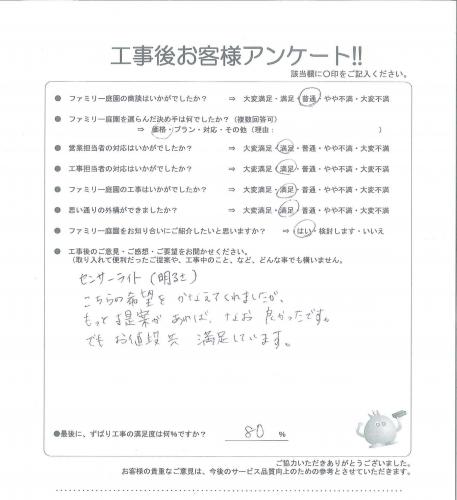 工事後お客様アンケート!!
該当欄に〇印をご記入ください。
● ファミリー庭園の商談はいかがでしたか？ ⇒ 大変満足・満足・普通・やや不満・大変不満
● ファミリー庭園を選らんだ決め手は何でしたか？（複数回答可）
⇒ 価格・プラン・対応・その他（理由： ）
● 営業担当者の対応はいかがでしたか？ ⇒ 大変満足・満足・普通・やや不満・大変不満
● 工事担当者の対応はいかがでしたか？ ⇒ 大変満足・満足・普通・やや不満・大変不満
● ファミリー庭園の工事はいかがでしたか？ ⇒ 大変満足・満足・普通・やや不満・大変不満
● 思い通りの外構ができましたか？ ⇒ 大変満足・満足・普通・やや不満・大変不満
● ファミリー庭園をお知り合いにご紹介したいと思いますか？ ⇒ はい・検討します・いいえ
● 工事後のご意見・ご感想・ご要望をお聞かせください。
（取り入れて便利だったご提案や、工事中のこと、など、どんな事でも構いません。
センサーライト（明るさ）
こちらの希望をかなえてくれましたが、
もっと提案があれば、なお良かったです。
でもお値段共 満足しています。
●最後に、ずばり工事の満足度は何％ですか？ 80 ％
ご協力いただきありがとうございました。
お客様の貴重なご意見は、今後のサービス品質向上のための参考とさせていただきます。